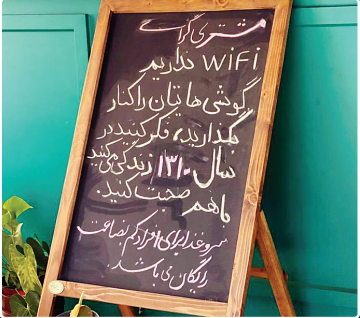 مشتری گرامی
WiFi نداریم
گوشی هایتان را کنار
بگذارید، فکر کنید در
سال ۱۳۱۰ زندگی می کنید
باهم صحبت کنید.
سرو غذا برای افراد کم بضاعت
رایگان می باشد.